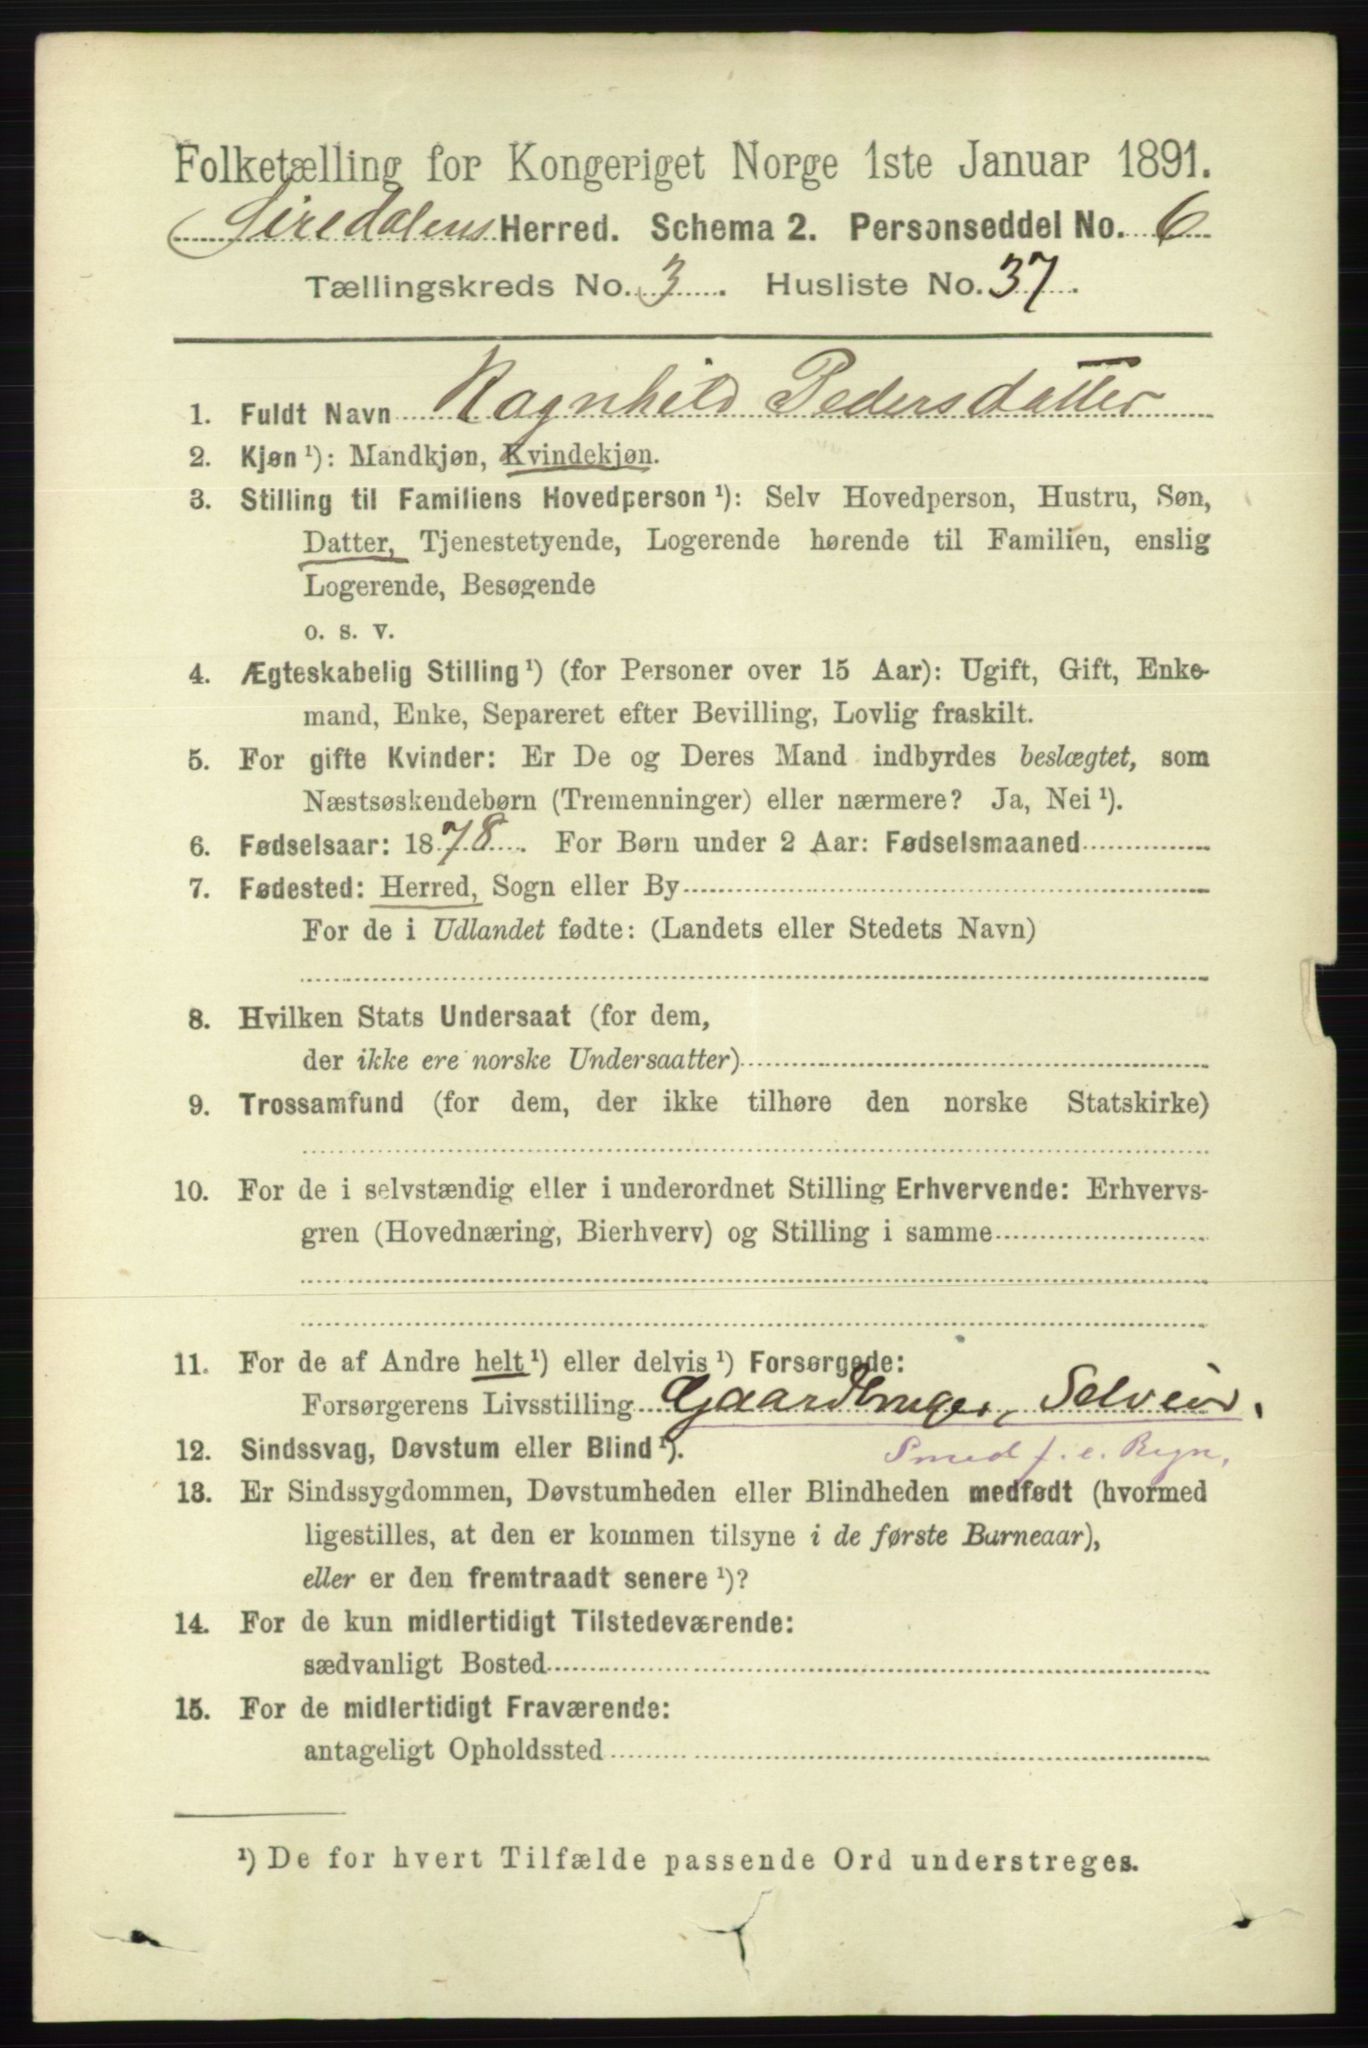 Folketælling for Kongeriget Norge 1ste Januar 1891.
Siredalens Herred. Schema 2. Personseddel No. 6
Tællingskreds No. 3. Husliste No. 37.
1. Fuldt Navn Ragnhild Pedersdatter
2. Kjøn ¹): Mandkjøn, Kvindekjøn.
3. Stilling til Familiens Hovedperson ¹): Selv Hovedperson, Hustru, Søn,
Datter, Tjenestetyende, Logerende hørende til Familien, enslig
Logerende, Besøgende
o. s. v.
4. Ægteskabelig Stilling ¹) (for Personer over 15 Aar): Ugift, Gift, Enke-
mand, Enke, Separeret efter Bevilling, Lovlig fraskilt.
5. For gifte Kvinder: Er De og Deres Mand indbyrdes beslægtet, som
Næstsøskendebørn (Tremenninger) eller nærmere? Ja, Nei ¹).
6. Fødselsaar: 1878. For Børn under 2 Aar: Fødselsmaaned
7. Fødested: Herred, Sogn eller By
For de i Udlandet fødte: (Landets eller Stedets Navn)
8. Hvilken Stats Undersaat (for dem,
der ikke ere norske Undersaatter)
9. Trossamfund (for dem, der ikke tilhøre den norske Statskirke)
10. For de i selvstændig eller i underordnet Stilling Erhvervende: Erhvervs-
gren (Hovednæring, Bierhverv) og Stilling i samme
11. For de af Andre helt ¹) eller delvis ¹) Forsørgede:
Forsørgerens Livsstilling Gaardbruger, Selveier.
12. Sindssvag, Døvstum eller Blind ¹). Smed f. e. Regn.
13. Er Sindssygdommen, Døvstumheden eller Blindheden medfødt (hvormed
ligestilles, at den er kommen tilsyne i de første Barneaar),
eller er den fremtraadt senere ¹)?
14. For de kun midlertidigt Tilstedeværende:
sædvanligt Bosted
15. For de midlertidigt Fraværende:
antageligt Opholdssted
¹) De for hvert Tilfælde passende Ord understreges.